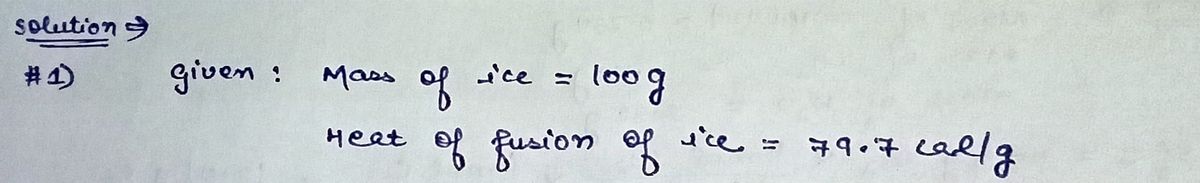 solution →
#1) given : Mass of ice = 100g
Heat of fusion of ice = 79.7 cal/g